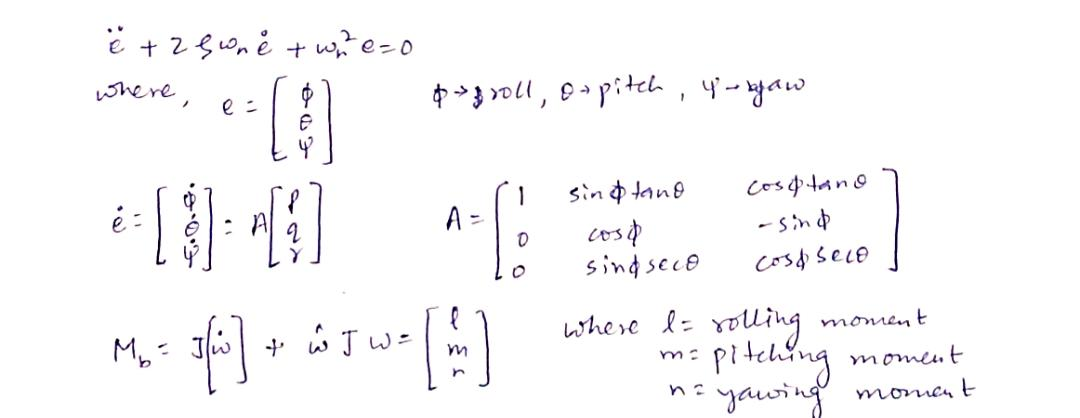 ë + 2ζωₙė + ωₙ²e=0
where, e = [ϕ θ ψ] ϕ→roll, θ→pitch, ψ→yaw
ė = [ϕ̇ θ̇ ψ̇] = A[p q r] A = [1 sinϕtanθ cosϕtanθ
0 cosϕ -sinϕ
0 sinϕsecθ cosϕsecθ]
M_b = J[ω̇] + ω̂Jω = [l m n] where l= rolling moment
m= pitching moment
n= yawing moment